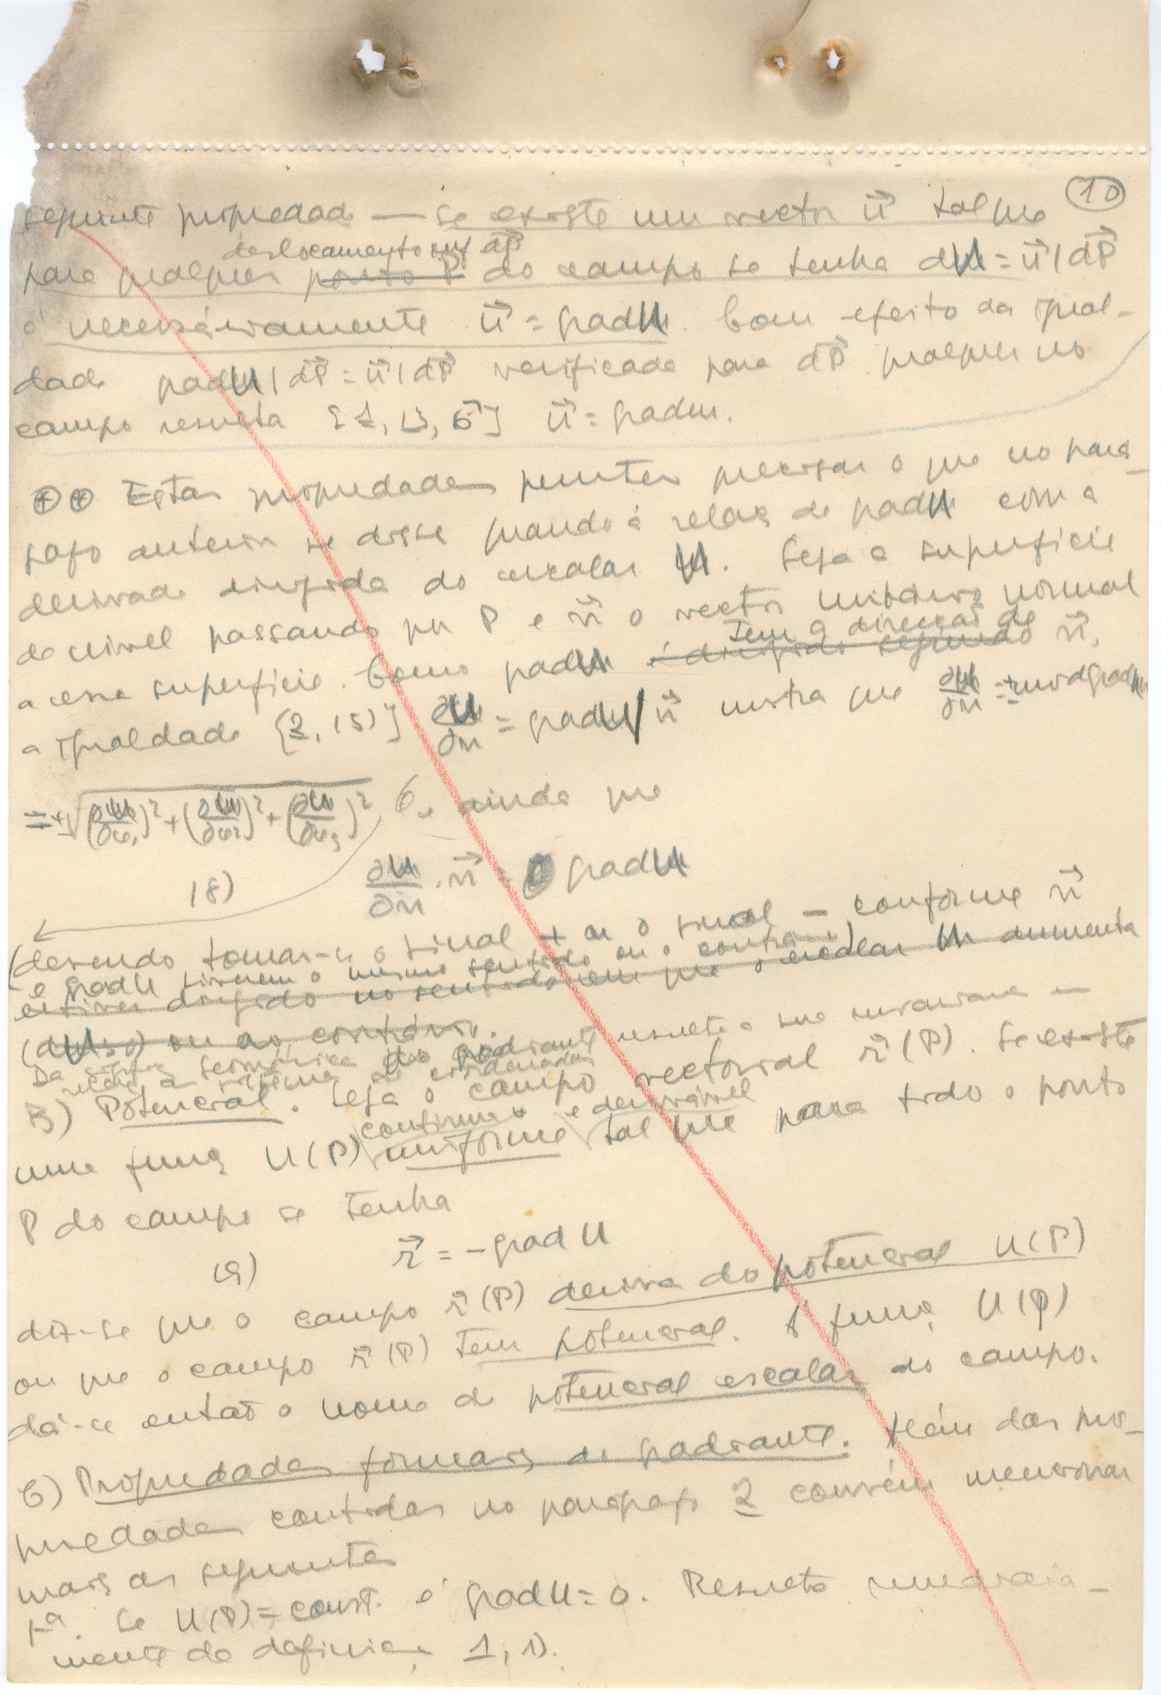 10
seguinte propriedade — se existe um vector u⃗ tal que
deslocamento dP⃗
para qualquer ponto P do campo se tenha dU = u⃗ | dP⃗
é necessàriamente u⃗ = grad U. Com efeito da igual-
dade grad U | dP⃗ = u⃗ | dP⃗ verificada para dP⃗ qualquer no
campo resulta u⃗ = grad u.
⊕⊕ Estas propriedades permitem precisar o que no pará-
grafo anterior se disse quando à relação de grad U com a
derivada dirigida do escalar U. Seja a superfície
de nível passando por P e n⃗ o vector unitário normal
tem a direcção de
a essa superfície. Como grad U é dirigido segundo n⃗,
a igualdade [2, 15)] ∂U/∂n = grad U | n⃗ mostra que ∂U/∂n = ± mod grad U
= ±√(∂U/∂x₁)² + (∂U/∂x₂)² + (∂U/∂x₃)² e, ainda que
18) ∂U/∂n · n⃗ = grad U
(devendo tomar-se o sinal + ou o sinal — conforme n⃗
e grad U tiverem o mesmo sentido ou o contrário)
estiver dirigido no sentido em que o escalar U aumenta
(dU>0) ou ao contrário.
Da natureza do gradiente resulta a sua
relação sistema de coordenadas
B) Potencial. Seja o campo vectorial r⃗(P). Se existe
contínua e derivável
uma função U(P) uniforme tal que para todo o ponto
P do campo se tenha
19) r⃗ = - grad U
diz-se que o campo r⃗(P) deriva do potencial U(P)
ou que o campo r⃗(P) tem potencial. À função U(P)
dá-se então o nome de potencial escalar do campo.
6) Propriedades formais do gradiente. Além das pro-
priedades contidas no parágrafo 2 convém mencionar
mais as seguintes
1ª. Se U(P) = const. é grad U = 0. Resulta imediata-
mente da definição 1, 1).